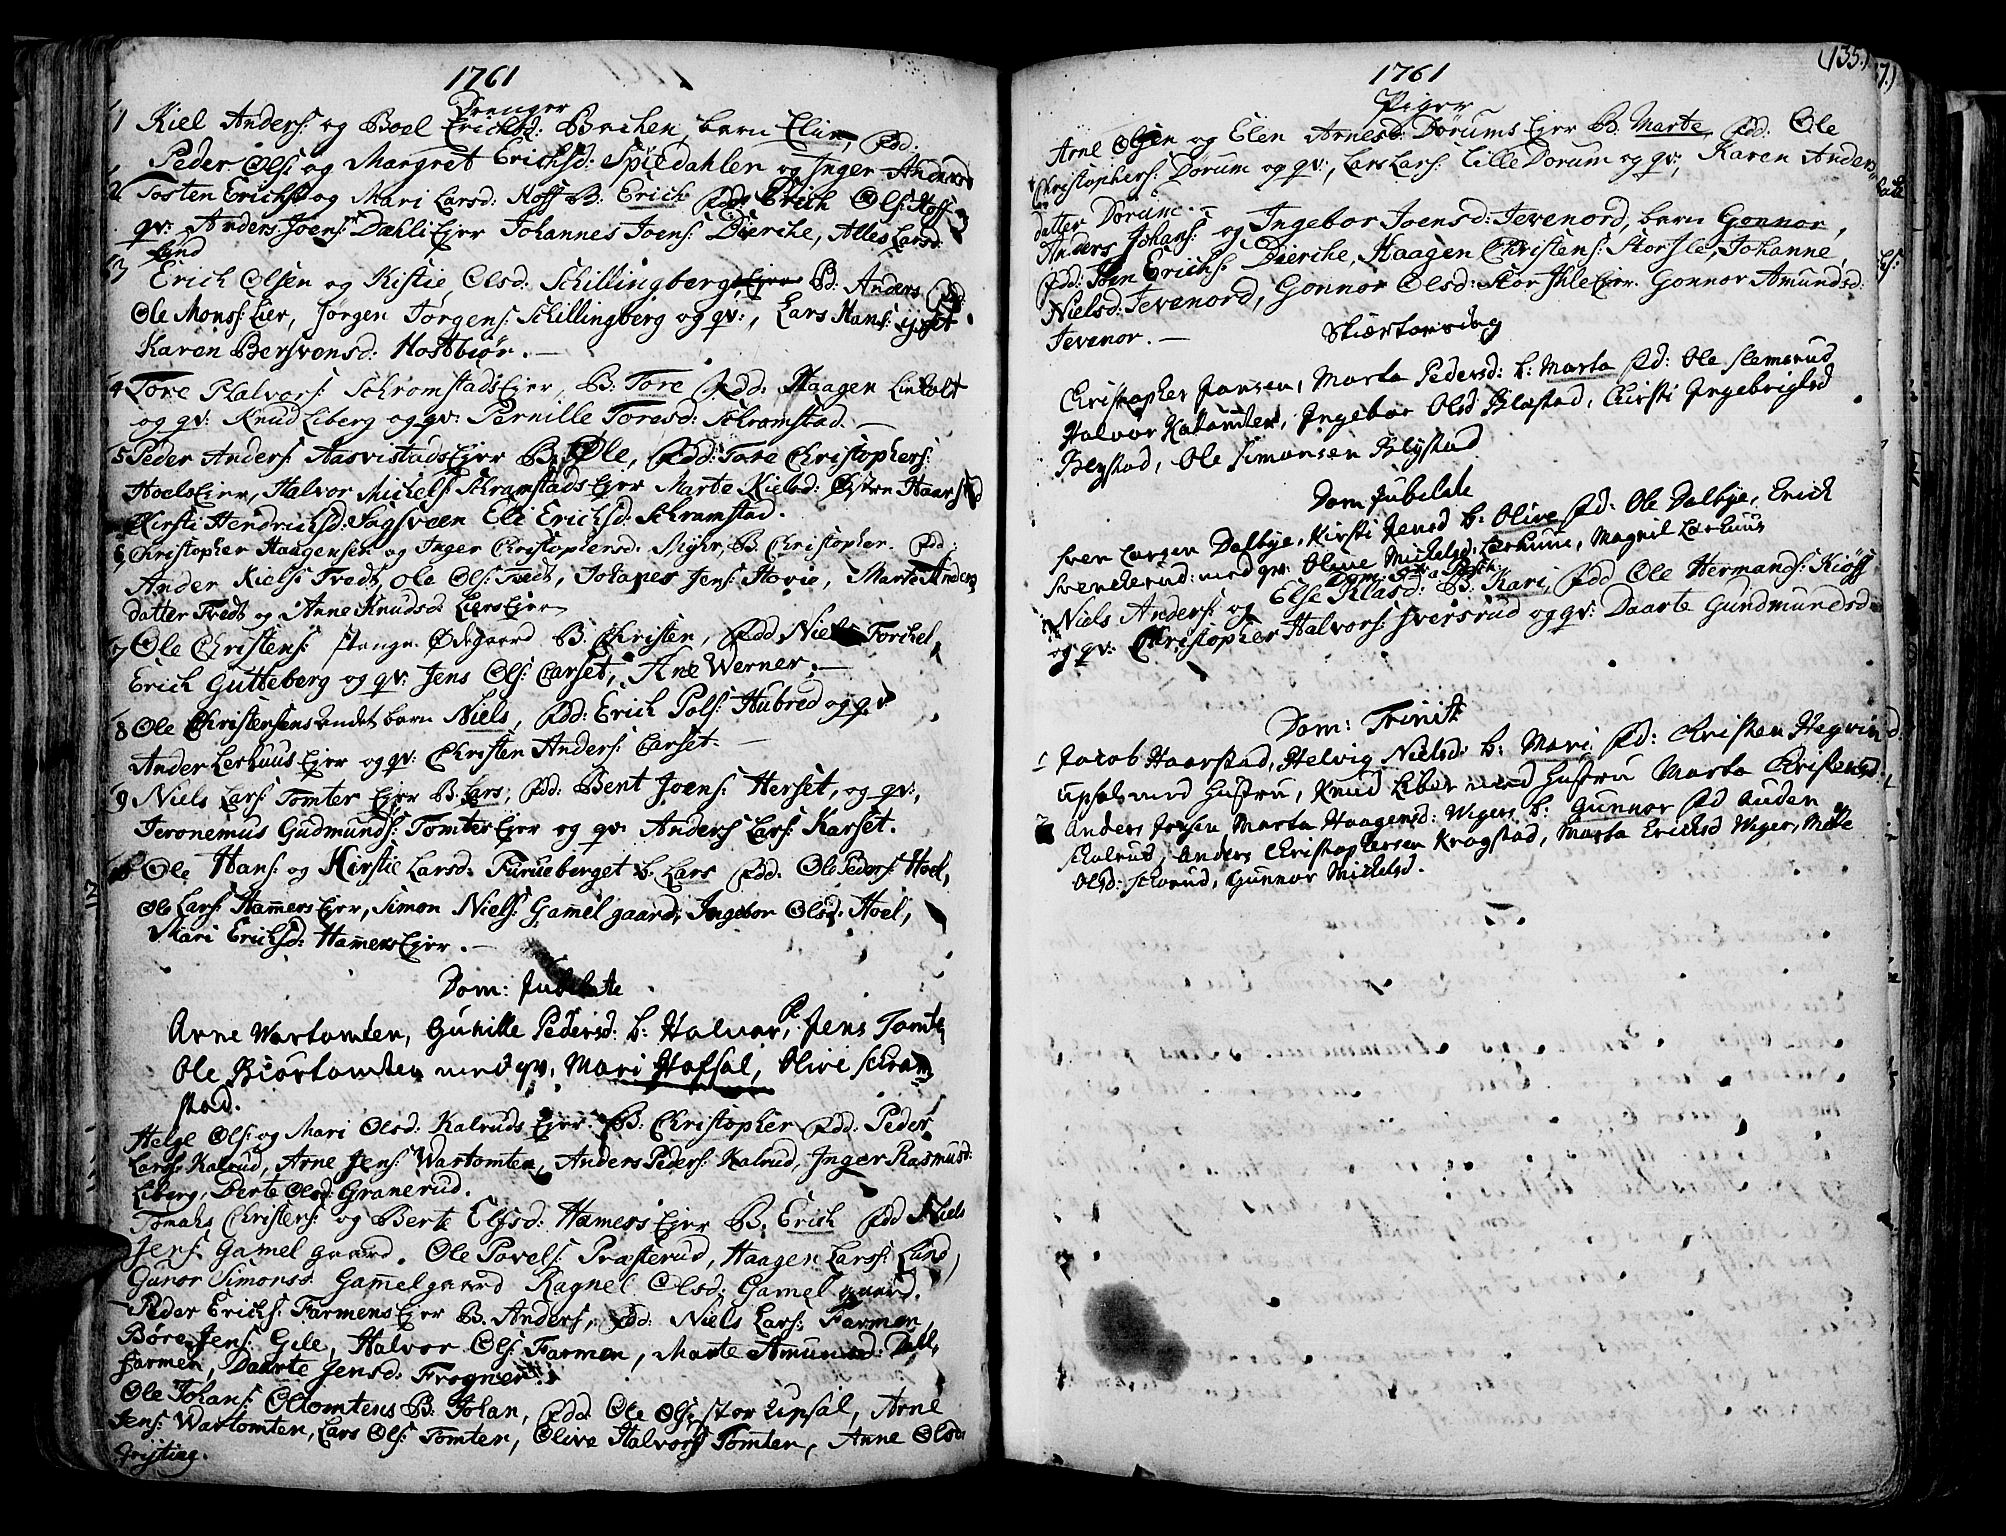 1761
Drenger
1 Kiel Anders: og Boel Erichsd: Bachen, barn Elin, Fdd:
Peder Ols: og Margret Erichsd: Spildahlen og Inger Andersd
2 Tosten Erichs: og Mari Larsd: Hoff B: Erich Fdd: Erich Ols: Hoff
qv: Anders Joens: Dæhli Ejer Johannes Joens: Dierche, Alles Larsd:
Lund
3 Erich Olsen og Kistie Olsd: Schillingberg, Ejer B: Anders Fdd:
Ole Mons: Lier, Jørgen Jørgens: Schillingberg og qv:, Lars Hans:
Karen Bersvensd: Hostbiør. —
4 Tore Halvors: Schromstads Ejer, B: Tore Fdd: Haagen Linholt
og qv: Knud Liberg og qv: Pernille Toresd: Schramstad. —
5 Peder Anders: Aasvistads Ejer B: Ole, Fdd: Tore Christophers:
Hoels Ejer, Halvor Michels: Schramstads Ejer Marte Kielsd: Østre Haarstad
Kirsti Hendrichsd: Sagsveen Eli Erichsd: Schramstad.
6 Christopher Haagensen og Inger Christophersd: Myhr, B: Christopher. Fdd:
Ander Kiels: Tvedt, Ole Ols: Tvedt, Johanes Jens: Hovie, Marte Anders
datter Tvedt og Anne Knudsd: Liers Ejer
7 Ole Christens: Stange Ødegaard B: Christen, Fdd Niels Torchel,
Erich Gutteberg og qv: Jens Ols: Carset, Ane Werner. —
8 Ole Christensens andet barn Niels, Fdd: Erich Pols: Hubred og qv
Ander Lerhuus Ejer og qv: Christen Anders: Carset. —
9 Niels Lars: Tomter Ejer B: Lars, Fdd: Bent Joens: Herset, og qv:,
Jeronemus Gudmunds: Tomter Ejer og qv: Anders Lars: Karset.
10 Ole Hans: og Kirstie Larsd: Furueberget b: Lars Fdd: Ole Peders: Hoel,
Ole Lars: Hamers Ejer, Simon Niels: Gamel gaard, Ingebor Olsd: Hoel,
Mari Erichsd: Hamers Ejer. —
Dom: Jubilate
Arne Wartomten, Gunille Pedersd: b: Halvor, F. Jens Tomte,
Ole Biørtomten med qv: Mari Hafsal, Olive Schram
stad.
Helge Ols: og Mari Olsd: Kalruds Ejer. B: Christopher Fdd: Peder
Lars: Kalrud, Arne Jens: Wartomten, Anders Peders: Kalrud, Inger Rasmusd:
Liberg, Berte Olsd: Granerud.
Tomahs Christens: og Berte Elfsd: Hamers Ejer B: Erich Fdd Niels
Jens: Gamel gaard. Ole Povels: Præsterud, Haagen Lars: Lund,
Guror Simonsd: Gamelgaard Ragnel Olsd: Gamel gaard.
Peder Erichs: Farmens Ejer B. Anders, Fdd: Niels Lars: Farmen,
Børe Jens: Gile, Halvor Ols: Farmen, Marte Amundsd: Dahl,
Farmen, Daarte Jensd: Frogner.
Ole Johans: Oltomtens B: Johan, Fdd: Ole Ols: Stor Upsal, Arne
Jens: Wartomten, Lars Ols: Tomter, Olive Halvors: Tomten, Anne Olsd:
Frystieg.
(135.)
1761
Piger
Arne Olsen og Elen Arnesd: Dørums Ejer B. Marte, Fdd: Ole
Christophers: Dørum og qv:, Lars Lars: Lille Dorum og qv:, Karen Anders
datter Dorum. —
Anders Johans: og Ingebor Joensd: Jevenord, barn Gonnor,
Fdd: Joen Erichs: Dierche, Haagen Christens: Storsle, Johanne
Nielsd: Jevenord, Gonnor Olsd: Stor Ihle Ejer. Gonnor Amundsd:
Jevenor. —
Skiærtorsdag
Christopher Jansen, Marta Pedersd: b: Marta Fd: Ole Slemsrud
Halvor Kalomten, Ingebor Olsd Blystad, Kirsti Ingebrigtsd
Blystad, Ole Simonsen Blystad
Dom Jubilate
Sven Larsen Dalbye, Kirsti Jensd b: Olive Fd: Ole Dalbye, Erich
Svenkerud med qv: Olive Michelsd: Lerhuus, Magnil Lerhuus
Niels Anders: og Else Klasd: B: Kari, Fdd Ole Hermands: Kiøss
og qv: Christopher Halvors: Sversrud og qv: Daarte Gundmundsd:
Dom: Trinit:
1 Jacob Haarstad, Helvig Nielsd: b: Mari Fd: Christen Hegvin
Upsal med Hustru, Knud Liber med Hustru Marta Christensd:
2 Anders Jensen Marta Haagensd: Wigers b: Gunnor Fd Auden
Schalrud, Anders Christophersen Kragstad, Marta Ericksd Wiger, Mete
Olsd: Schorud, Gunnor Mickelsd.